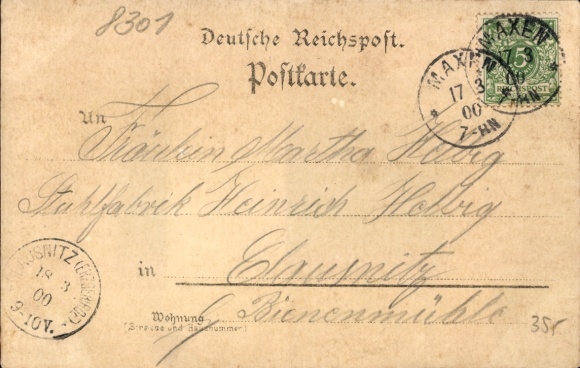 8301
Deutsche Reichspost.
Postkarte.
MAXEN
17 3 00
7-8N
MAXEN
5
REICHSPOST
An
Fräulein Martha Helbig
Stuhlfabrik Heinrich Helbig
in Clausnitz
Bienenmühle
Wohnung
(Strasse und Hausnummer)
18 3
00
9-10V.
35r